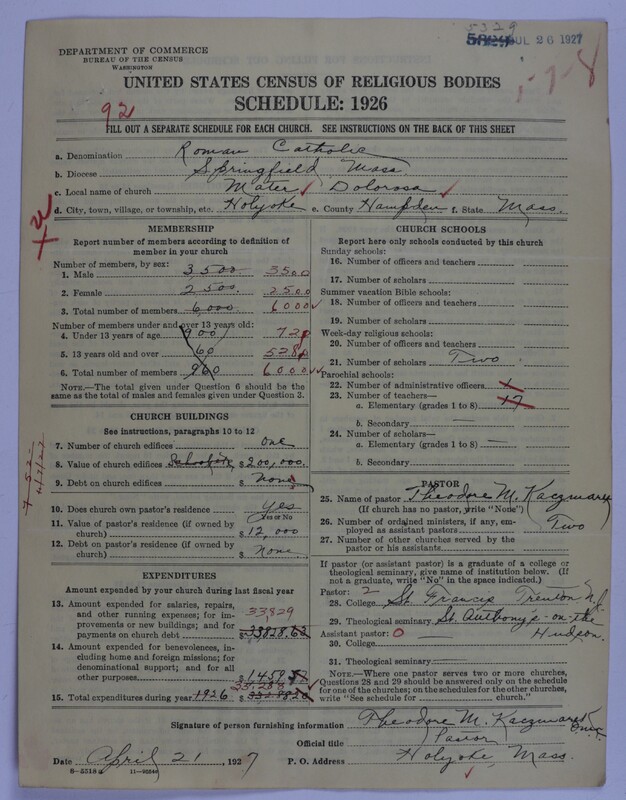 5329
5829 JUL 26 1927
DEPARTMENT OF COMMERCE
BUREAU OF THE CENSUS
WASHINGTON
UNITED STATES CENSUS OF RELIGIOUS BODIES
SCHEDULE: 1926
92
FILL OUT A SEPARATE SCHEDULE FOR EACH CHURCH. SEE INSTRUCTIONS ON THE BACK OF THIS SHEET
a. Denomination Roman Catholic
b. Diocese Springfield, Mass.
c. Local name of church Mater Dolorosa
d. City, town, village, or township, etc. Holyoke e. County Hampden f. State Mass.
MEMBERSHIP
Report number of members according to definition of
member in your church
Number of members, by sex:
1. Male 3,500 3500
2. Female 2,500 2500
3. Total number of members 6,000 6000
Number of members under and over 13 years old:
4. Under 13 years of age 900 720
5. 13 years old and over 60 5280
6. Total number of members 960 6000
NOTE.—The total given under Question 6 should be the
same as the total of males and females given under Question 3.
CHURCH BUILDINGS
See instructions, paragraphs 10 to 12
7. Number of church edifices one
8. Value of church edifices $200,000.
9. Debt on church edifices $ None
10. Does church own pastor's residence? Yes
Yes or No
11. Value of pastor's residence (if owned by
church) $12,000
12. Debt on pastor's residence (if owned by
church) $ None
EXPENDITURES
Amount expended by your church during last fiscal year
13. Amount expended for salaries, repairs,
and other running expenses; for im-
provements or new buildings; and for
payments on church debt 33,829
$33828.63
14. Amount expended for benevolences,
including home and foreign missions; for
denominational support; and for all
other purposes
15. Total expenditures during year 1926
CHURCH SCHOOLS
Report here only schools conducted by this church
Sunday schools:
16. Number of officers and teachers
17. Number of scholars
Summer vacation Bible schools:
18. Number of officers and teachers
19. Number of scholars
Week-day religious schools:
20. Number of officers and teachers
21. Number of scholars Two
Parochial schools:
22. Number of administrative officers
23. Number of teachers—
a. Elementary (grades 1 to 8) 17
b. Secondary
24. Number of scholars—
a. Elementary (grades 1 to 8)
b. Secondary
PASTOR
25. Name of pastor Theodore M. Kaczmarek
(If church has no pastor, write "None")
26. Number of ordained ministers, if any, em-
ployed as assistant pastors Two
27. Number of other churches served by the
pastor or his assistants
If pastor (or assistant pastor) is a graduate of a college or
theological seminary, give name of institution below. (If
not a graduate, write "No" in the space indicated.)
Pastor: 2
28. College St. Francis Trenton N.J.
29. Theological seminary St. Anthony's-on-the
Assistant pastor: 0 Hudson
30. College
31. Theological seminary
NOTE.—Where one pastor serves two or more churches,
Questions 28 and 29 should be answered only on the schedule
for one of the churches; on the schedules for the other churches,
write "See schedule for church."
Signature of person furnishing information Theodore M. Kaczmarek
Official title Pastor
Date April 21, 1927 P. O. Address Holyoke, Mass.
8-5518a 11-9064